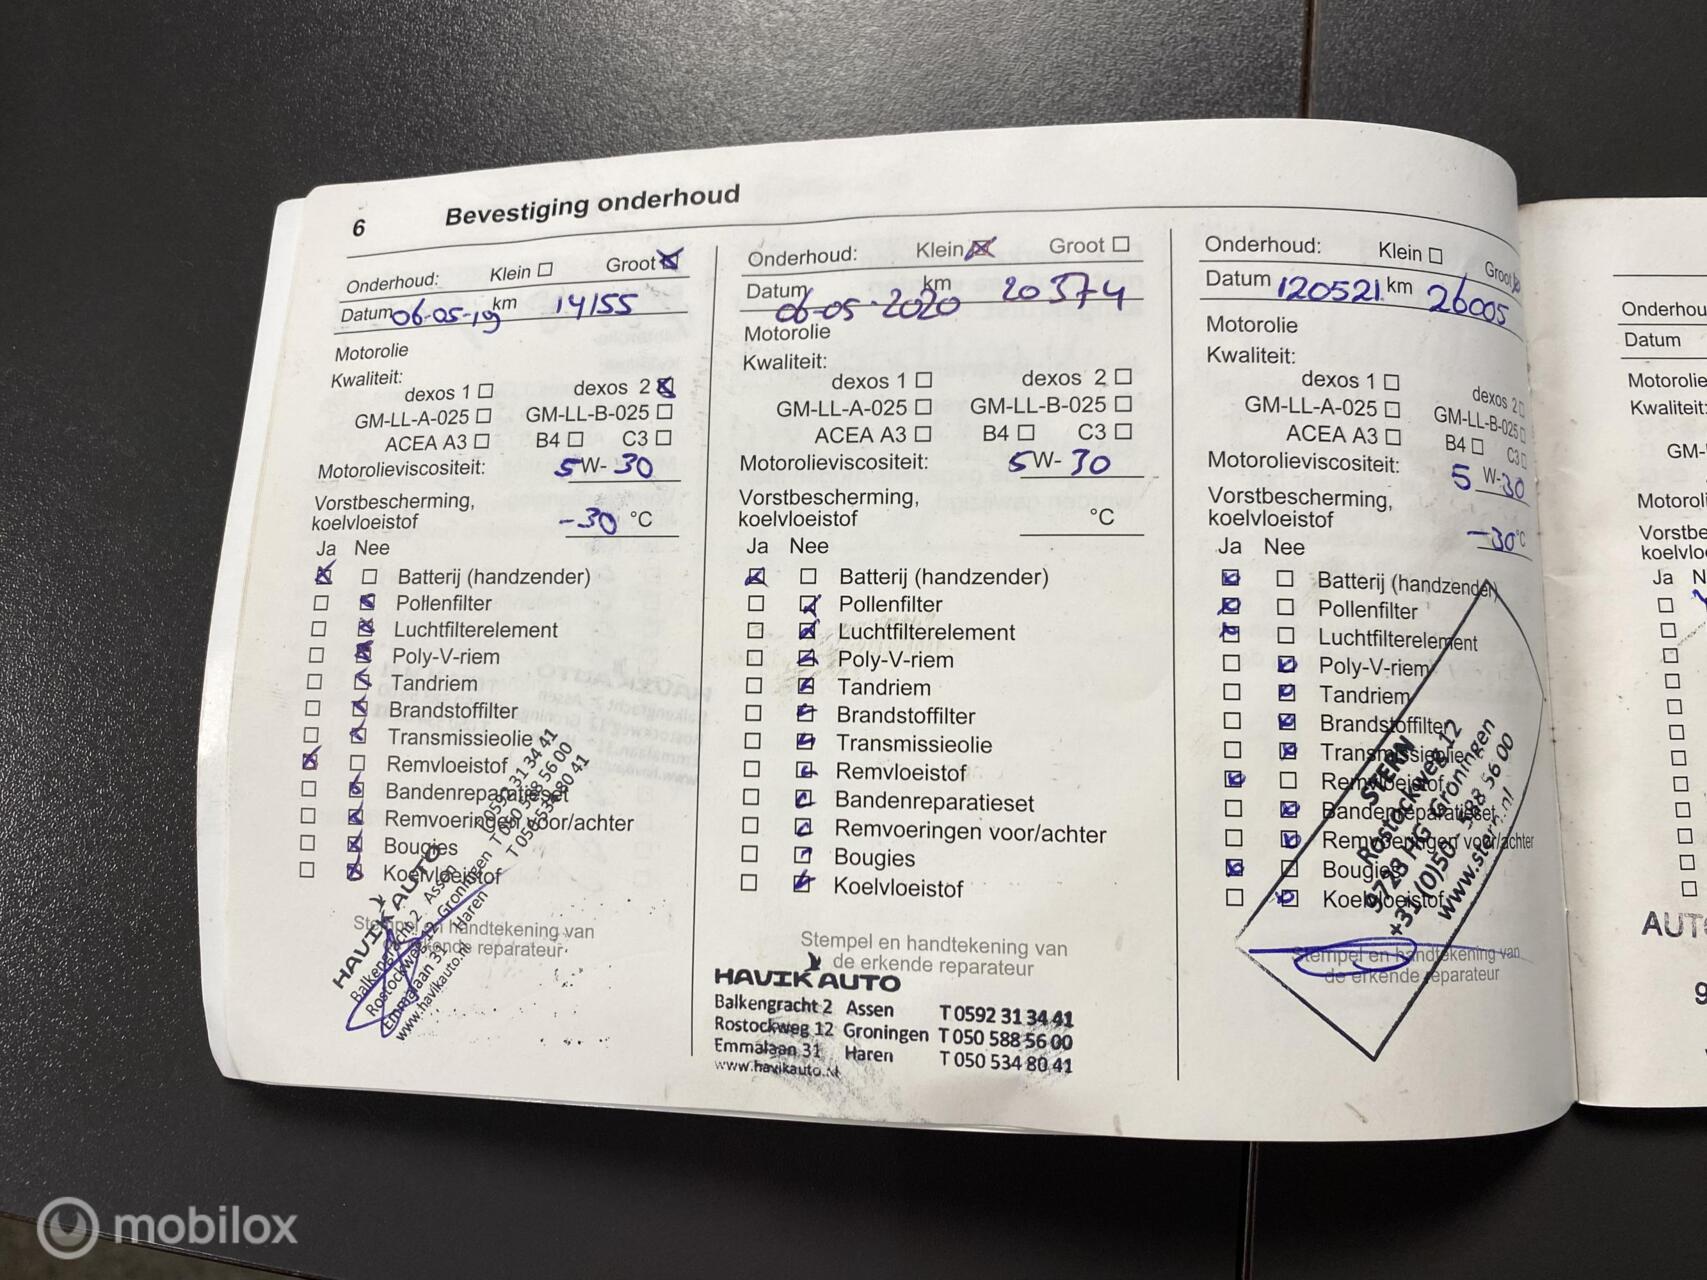 6 Bevestiging onderhoud
Onderhoud: Klein Groot
Datum 06-05-19 km 14155
Motorolie
Kwaliteit:
dexos 1 dexos 2
GM-LL-A-025 GM-LL-B-025
ACEA A3 B4 C3
Motorolieviscositeit: 5W-30
Vorstbescherming,
koelvloeistof -30 °C
Ja Nee
Batterij (handzender)
Pollenfilter
Luchtfilterelement
Poly-V-riem
Tandriem
Brandstoffilter
Transmissieolie
Remvloeistof
Bandenreparatieset
Remvoeringen voor/achter
Bougies
Koelvloeistof
Stempel en handtekening van
de erkende reparateur
HAVIK AUTO
Balkengracht 2 Assen T 0592 31 34 41
Rostockweg 12 Groningen T 050 588 56 00
Emmalaan 31 Haren T 050 534 80 41
www.havikauto.nl
Onderhoud: Klein Groot
Datum 06-05-2020 km 20374
Motorolie
Kwaliteit:
dexos 1 dexos 2
GM-LL-A-025 GM-LL-B-025
ACEA A3 B4 C3
Motorolieviscositeit: 5W-30
Vorstbescherming,
koelvloeistof °C
Ja Nee
Batterij (handzender)
Pollenfilter
Luchtfilterelement
Poly-V-riem
Tandriem
Brandstoffilter
Transmissieolie
Remvloeistof
Bandenreparatieset
Remvoeringen voor/achter
Bougies
Koelvloeistof
Stempel en handtekening van
de erkende reparateur
HAVIK AUTO
Balkengracht 2 Assen T 0592 31 34 41
Rostockweg 12 Groningen T 050 588 56 00
Emmalaan 31 Haren T 050 534 80 41
www.havikauto.nl
Onderhoud: Klein Groot
Datum 120521 km 26005
Motorolie
Kwaliteit:
dexos 1 dexos 2
GM-LL-A-025 GM-LL-B-025
ACEA A3 B4 C3
Motorolieviscositeit: 5 W-30
Vorstbescherming,
koelvloeistof -30 °C
Ja Nee
Batterij (handzender)
Pollenfilter
Luchtfilterelement
Poly-V-riem
Tandriem
Brandstoffilter
Transmissieolie
Remvloeistof
Bandenreparatieset
Remvoeringen voor/achter
Bougies
Koelvloeistof
Stempel en handtekening van
de erkende reparateur
STERN
Rostockweg 12
9728 HG Groningen
+31(0)50 - 588 56 00
www.stern.nl
Onderhou
Datum
Motorolie
Kwaliteit:
GM-
Motoroli
Vorstbe
koelvlo
Ja N
AUTO
9
mobilox